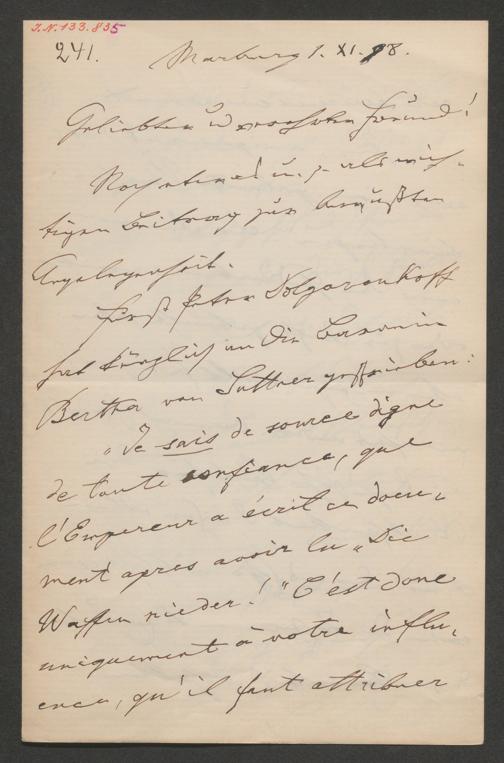 I.N. 133.835
241.
Marburg 1. XI. 98.
Geliebter u verehrter Freund!
Noch etwas u. z. als wich-
tigen Beitrag zur bewußten
Angelegenheit.
Fürst Peter Dolgoroukoff
hat kürzlich an die Baronin
Bertha von Suttner geschrieben:
"Je sais de source digne
de toute confiance, que
l'Empereur a écrit ce docu-
ment apres avoir lu „Die
Waffen nieder!" C'est donc
uniquement à votre influ-
ence, qu'il faut attribuer